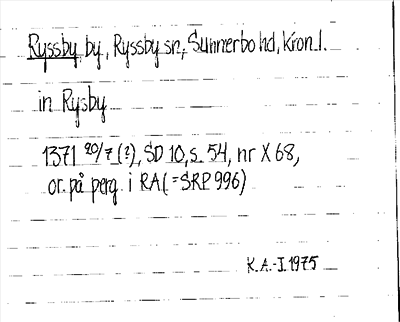 Ryssby by, Ryssby sn, Sunnerbo hd, Kron. l.
in Rysby
1371 20/7 (?), SD 10, s. 54, nr X 68,
or. på perg. i RA (=SRP 996)
K.A.-I. 1975